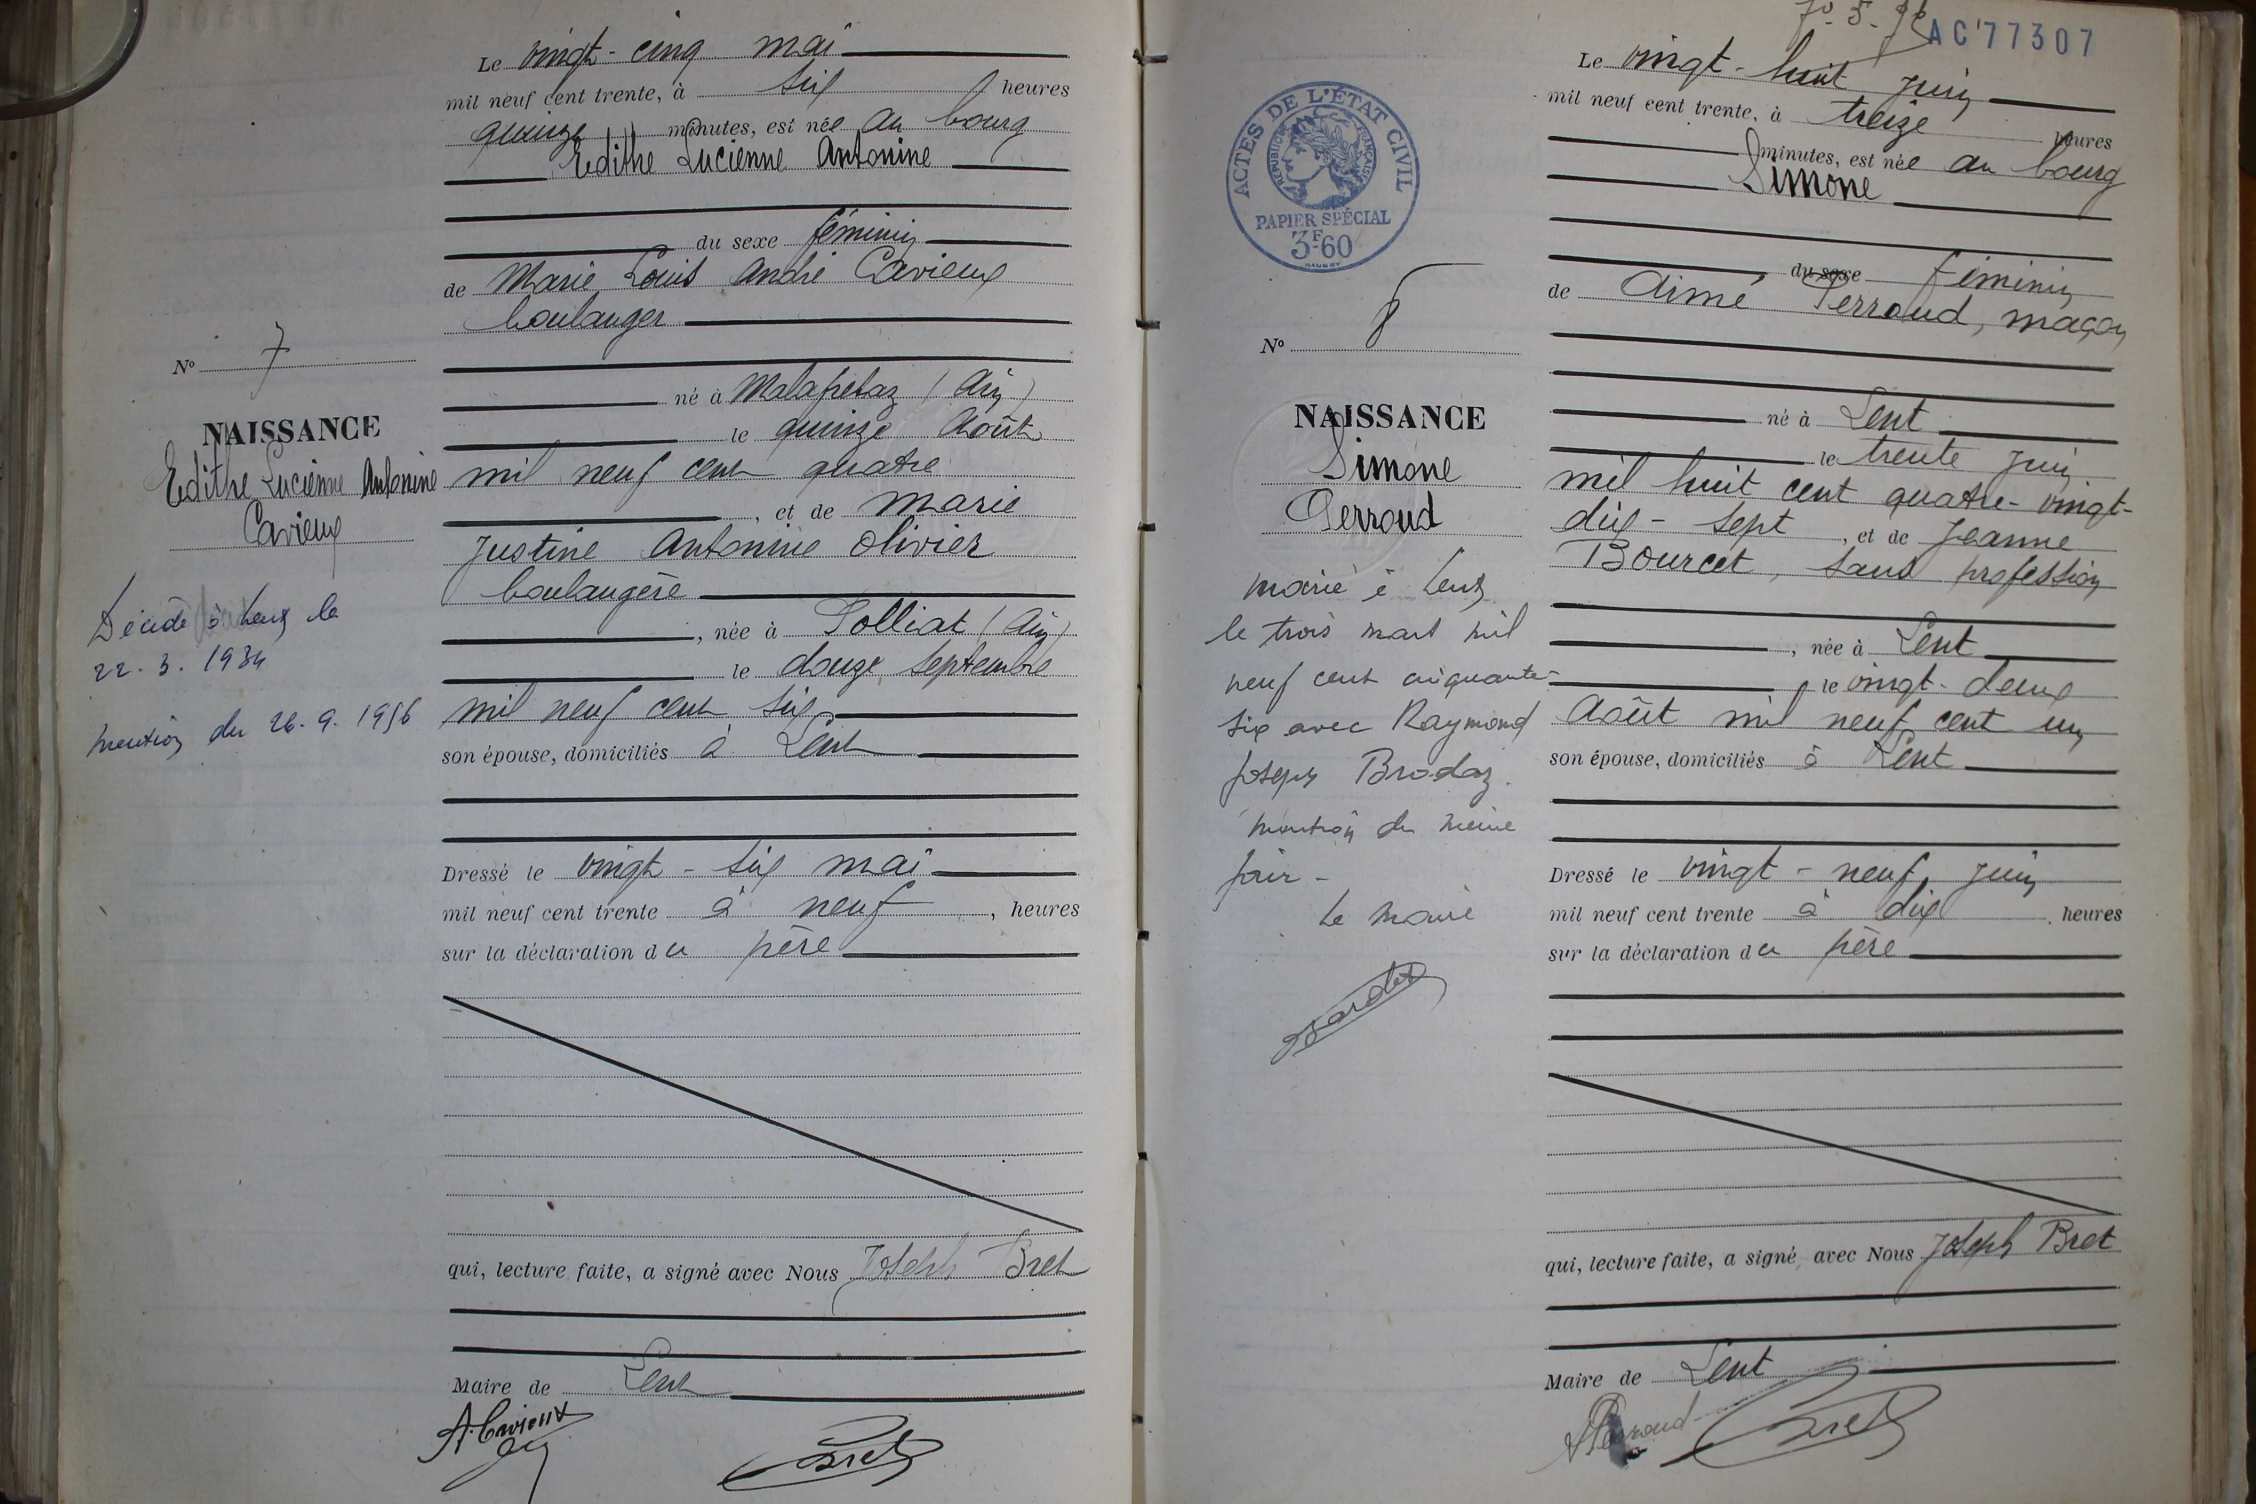 Le vingt-cinq mai
mil neuf cent trente, à six heures
quinze minutes, est née au bourg
Edithe Lucienne Antonine
du sexe féminin
de Marie Louis André Cavieux
boulanger
né à Malafretaz (Ain)
le quinze Août
mil neuf cent quatre
, et de Marie
Justine Antonine Olivier
boulangère
, née à Polliat (Ain)
le douze septembre
mil neuf cent six
son épouse, domiciliés à Lent
Dressé le vingt-six mai
mil neuf cent trente à neuf , heures
sur la déclaration du père
qui, lecture faite, a signé avec Nous Joseph Bret
Maire de Lent
A. Cavieux
Bret
No 7
NAISSANCE
Edithe Lucienne Antonine
Cavieux
Décédé à Lent le
22.3.1934
mention du 26.9.1956
AC'77307
Le vingt-huit juin
mil neuf cent trente, à treize heures
minutes, est née au bourg
Simone
du sexe féminin
de Aimé Perroud, maçon
né à Lent
le trente juin
mil huit cent quatre-vingt-
dix-sept , et de Jeanne
Bourcet, sans profession
, née à Lent
le vingt-deux
Août mil neuf cent un
son épouse, domiciliés à Lent
Dressé le vingt-neuf juin
mil neuf cent trente à dix heures
sur la déclaration du père
qui, lecture faite, a signé avec Nous Joseph Bret
Maire de Lent
Perroud
Bret
ACTES DE L'ÉTAT CIVIL
RÉPUBLIQUE FRANÇAISE
PAPIER SPÉCIAL
3F60
No 8
NAISSANCE
Simone
Perroud
marié à Lent
le trois mars mil
neuf cent cinquante-
six avec Raymond
Joseph Brodaz.
mention du même
jour -
Le Maire